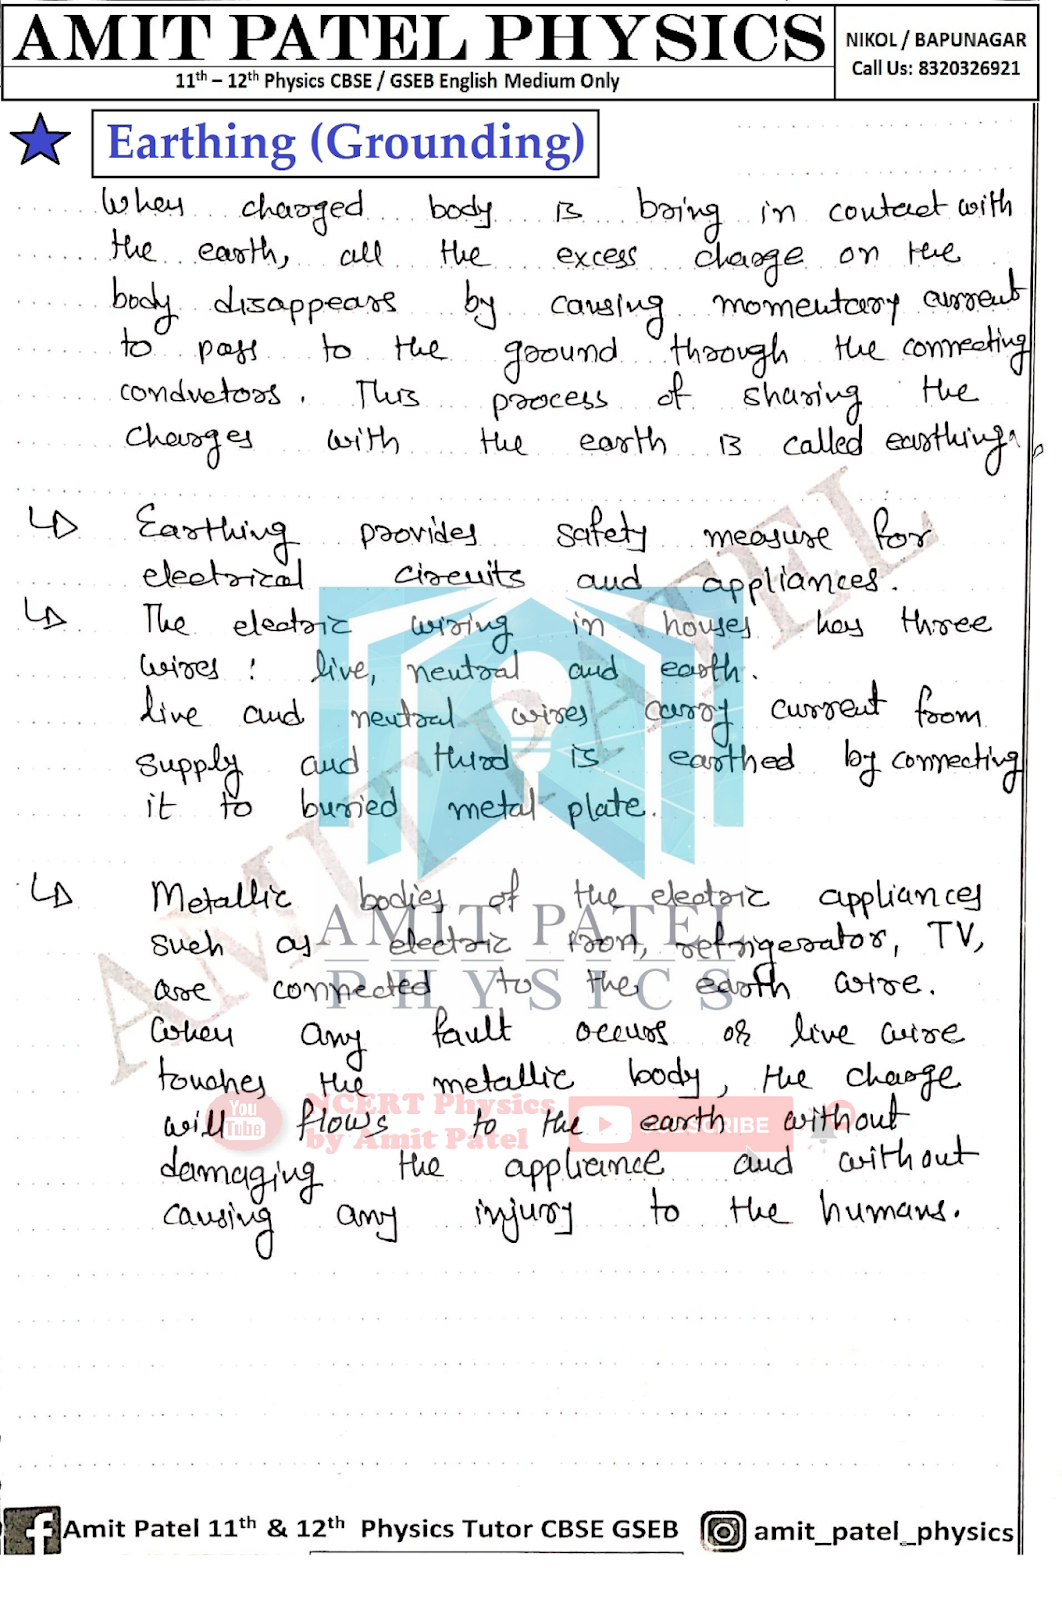 AMIT PATEL PHYSICS
11th – 12th Physics CBSE / GSEB English Medium Only
NIKOL / BAPUNAGAR
Call Us: 8320326921
Earthing (Grounding)
When charged body is bring in contact with
the earth, all the excess charge on the
body disappears by causing momentary current
to pass to the ground through the connecting
conductors. This process of sharing the
charges with the earth is called earthing.
Earthing provides safety measure for
electrical circuits and appliances.
The electric wiring in houses has three
wires: live, neutral and earth.
live and neutral wires carry current from
supply and third is earthed by connecting
it to buried metal plate.
Metallic bodies of the electric appliances
such as electric iron, refrigerator, TV,
are connected to the earth wire.
When any fault occurs or live wire
touches the metallic body, the charge
will flows to the earth without
damaging the appliance and without
causing any injury to the humans.
AMIT PATEL
AMIT PATEL
PHYSICS
You
Tube
NCERT Physics
by Amit Patel
SUBSCRIBE
Amit Patel 11th & 12th Physics Tutor CBSE GSEB
amit_patel_physics